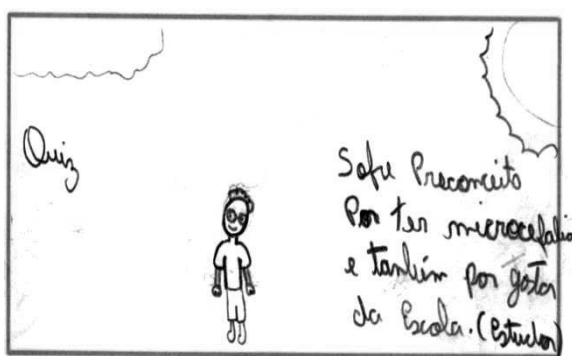 Quiz
Sofre Preconceito
Por ter microcefalia
e também por gosta
da Escola. (Estudar)